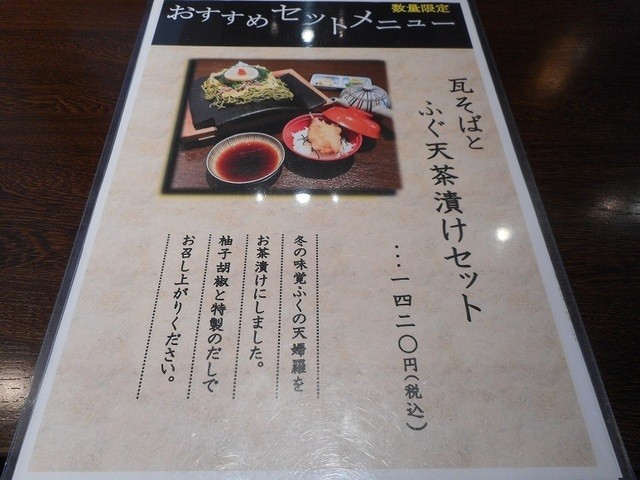 おすすめセットメニュー
数量限定
瓦そばと
ふぐ天茶漬けセット
・・・一四二〇円(税込)
冬の味覚ふくの天婦羅を
お茶漬けにしました。
柚子胡椒と特製のだしで
お召し上がりください。